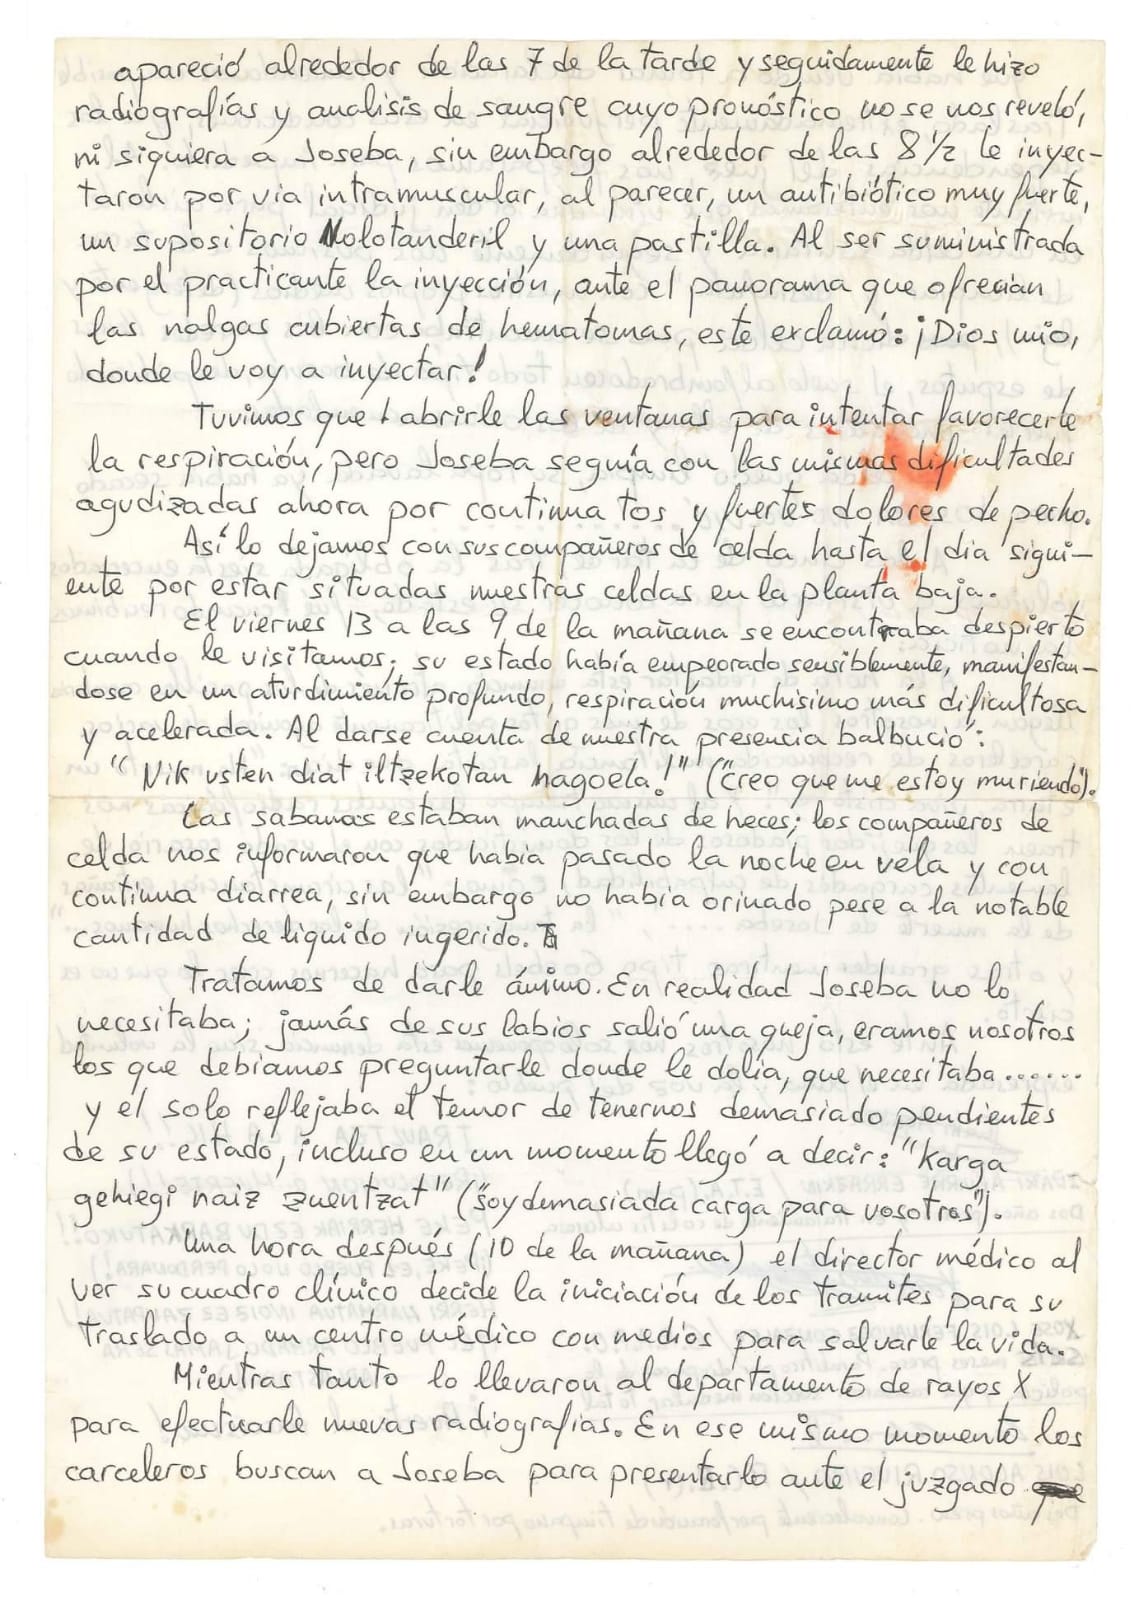 apareció alrededor de las 7 de la tarde y seguidamente le hizo
radiografías y analisis de sangre cuyo pronóstico no se nos reveló,
ni siquiera a Joseba, sin embargo alrededor de las 8 1/2 le inyec-
taron por via intramuscular, al parecer, un antibiótico muy fuerte,
un supositorio Nolotanderil y una pastilla. Al ser suministrada
por el practicante la inyección, ante el panorama que ofrecian
las nalgas cubiertas de hematomas, este exclamó: ¡Dios mio,
donde le voy a inyectar!
Tuvimos que abrirle las ventanas para intentar favorecerle
la respiración, pero Joseba seguía con las mismas dificultades
agudizadas ahora por continua tos y fuertes dolores de pecho.
Así lo dejamos con sus compañeros de celda hasta el dia sigui-
ente por estar situadas nuestras celdas en la planta baja.
El viernes 13 a las 9 de la mañana se encontraba despierto
cuando le visitamos; su estado había empeorado sensiblemente, manifestan-
dose en un aturdimiento profundo, respiración muchisimo más dificultosa
y acelerada. Al darse cuenta de nuestra presencia balbució:
"Nik usten diat iltzekotan nagoela!" ("creo que me estoy muriendo").
Las sabanas estaban manchadas de heces; los compañeros de
celda nos informaron que habia pasado la noche en vela y con
continua diarrea, sin embargo no habia orinado pese a la notable
cantidad de liquido ingerido.
Tratamos de darle ánimo. En realidad Joseba no lo
necesitaba; jamás de sus labios salió una queja, eramos nosotros
los que debiamos preguntarle donde le dolia, que necesitaba......
y él solo reflejaba el temor de tenernos demasiado pendientes
de su estado, incluso en un momento llegó a decir: "Karga
gehiegi naiz zuentzat" ("soy demasiada carga para vosotros").
Una hora después (10 de la mañana) el director médico al
ver su cuadro clínico decide la iniciación de los tramites para su
traslado a un centro médico con medios para salvarle la vida.
Mientras tanto lo llevaron al departamento de rayos X
para efectuarle nuevas radiografias. En ese mismo momento los
carceleros buscan a Joseba para presentarlo ante el juzgado